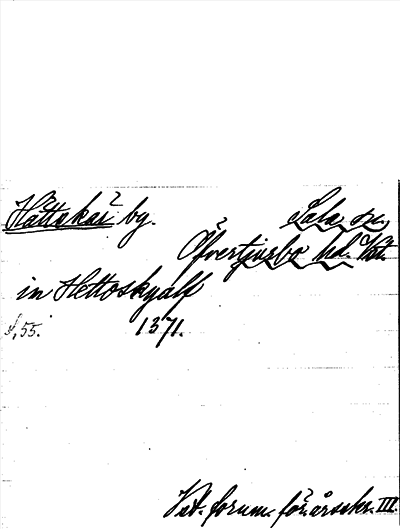 Hättskär by. Sala sn.
Öfvertjusbo hd. Vstt.
in Hettoskyalf
s, 55. 1371.
Vet. forum. för. årsskr. III.